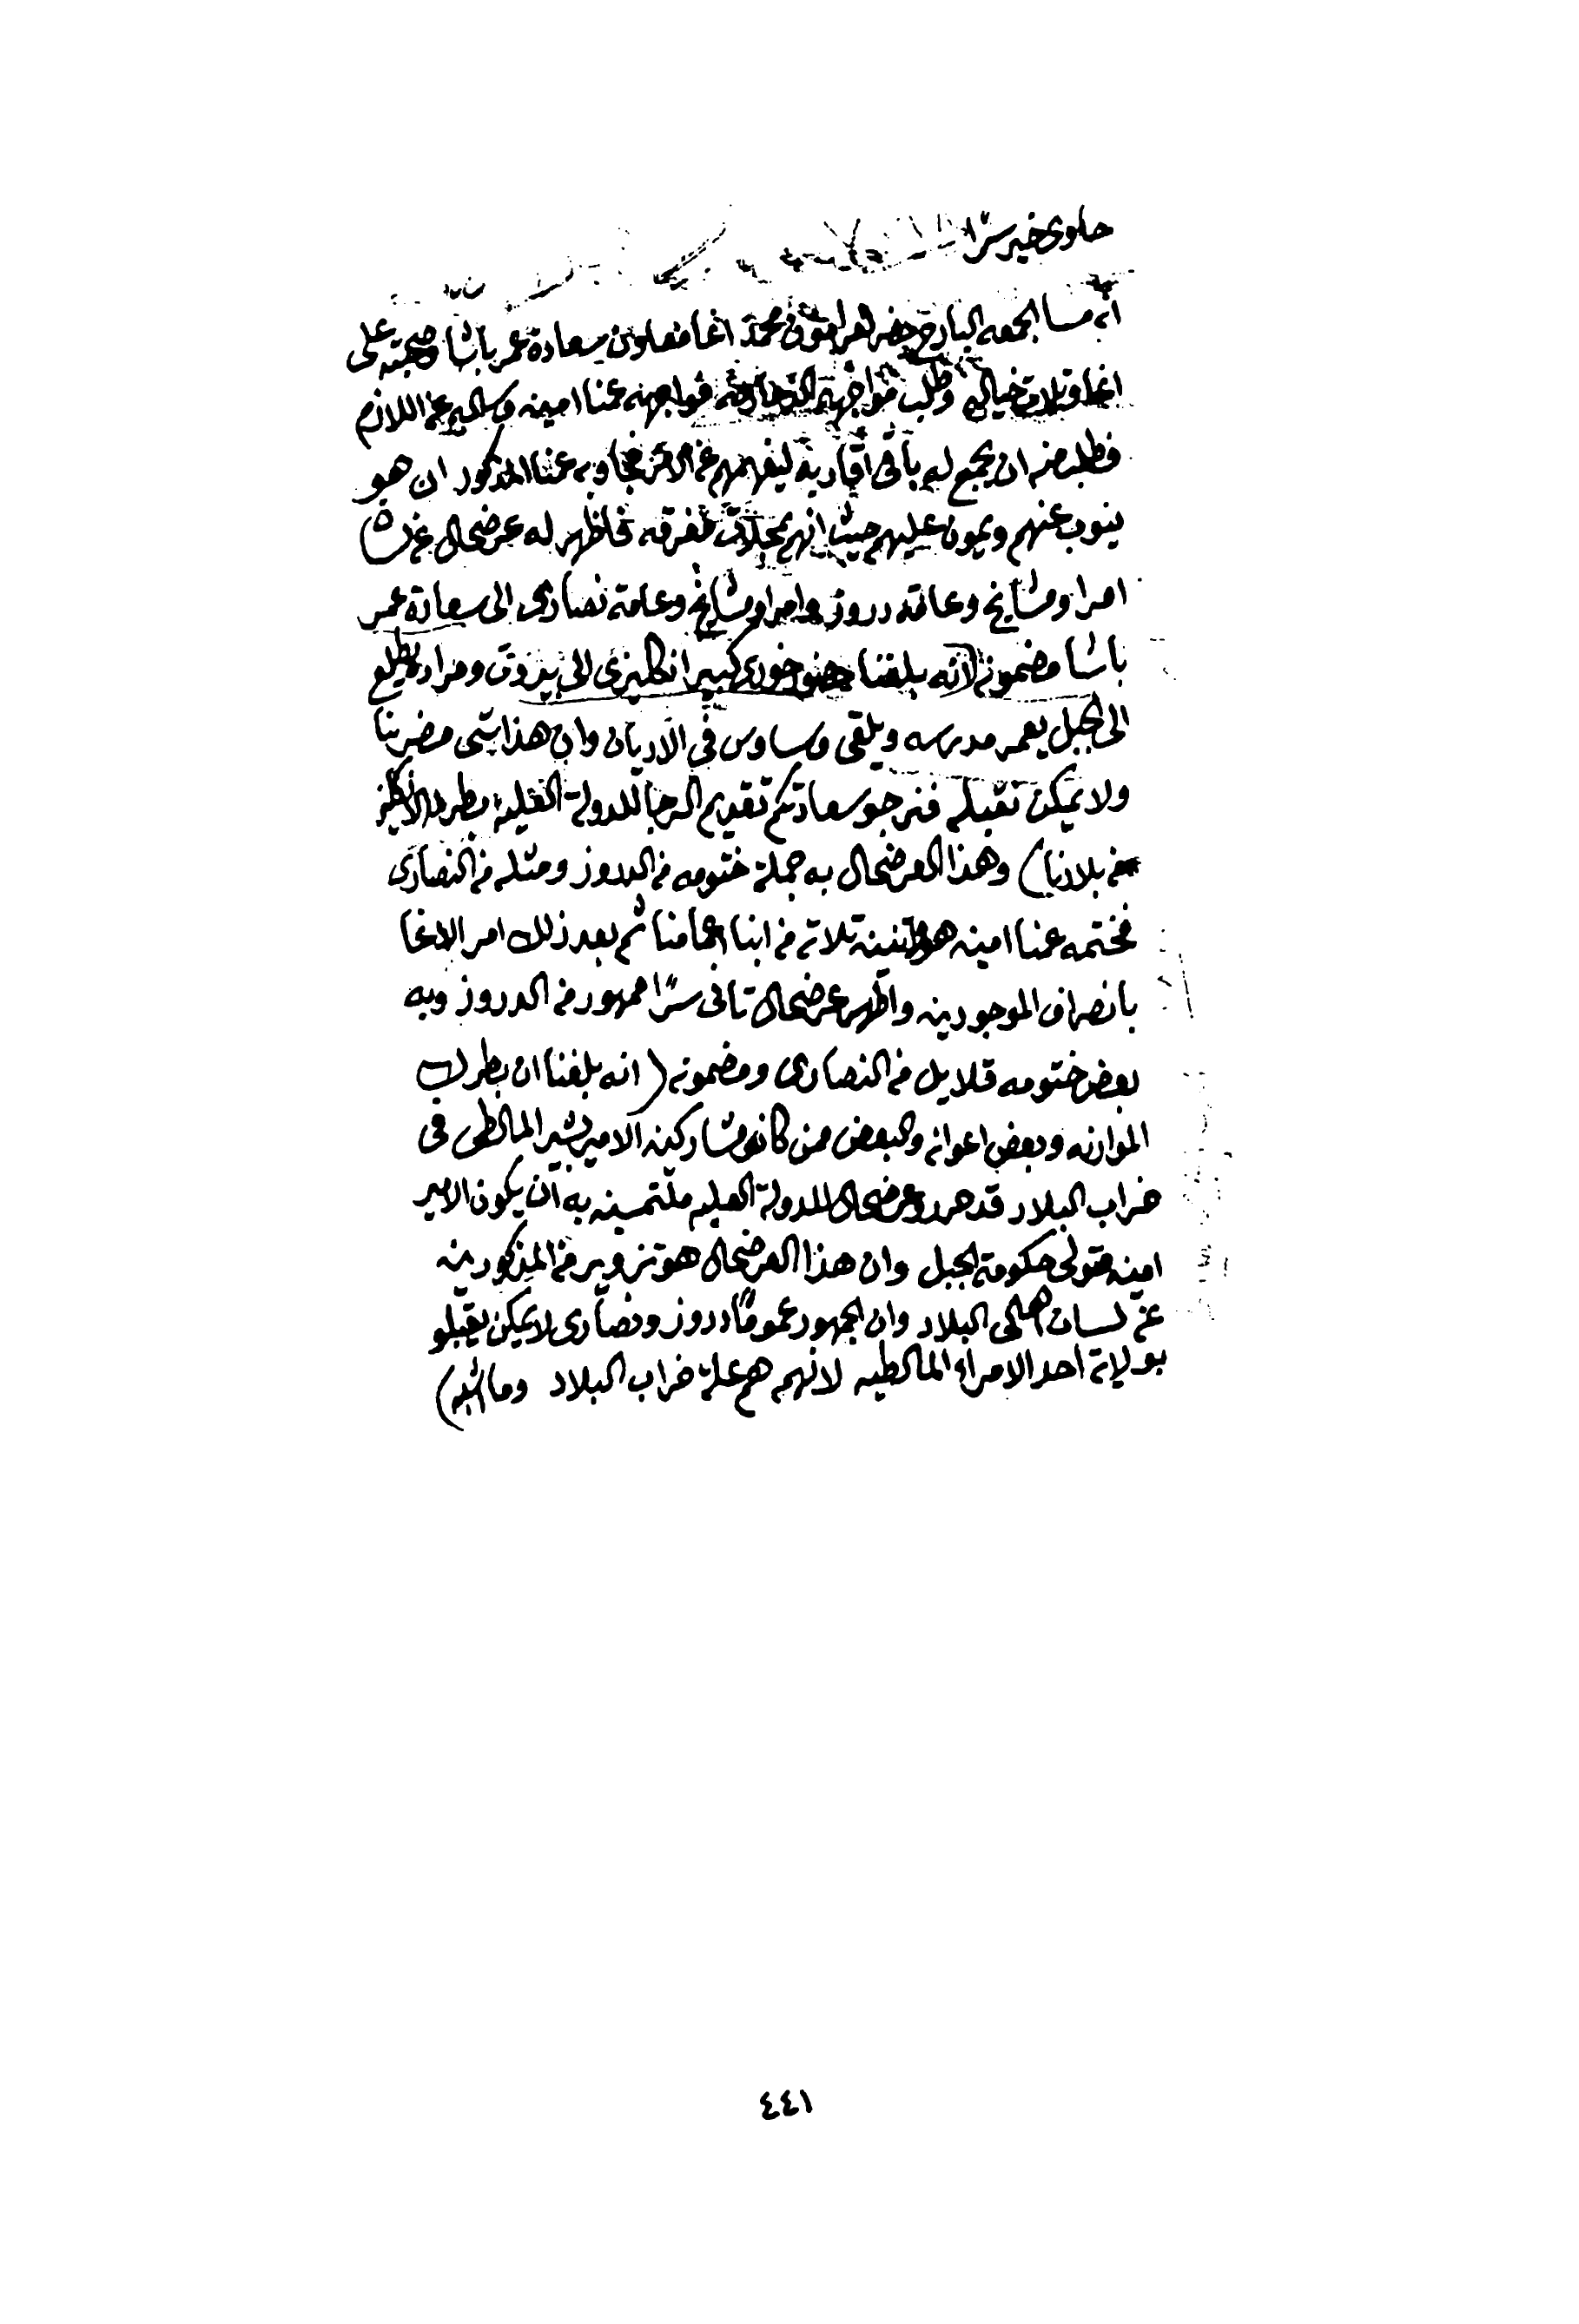 حاوي خير سرًا
انه مسا الجمعه البارح حضر لعرامون محمد اغا معاون سعادة عمر باشا وصحبته علي
اغا وتلات خياله وطلب مواجهة فواجهه عمنا امين وساله عن اللازم
فطلب منه ان يجمع له باقي اقاربه ليفهمهم عن الامر فجاوبه عمنا المذكور ان هو
ينوب عنهم ويمون عليهم حيث انهم بمحلات مفرقه فاظهر له عرضحال عن لسان
امرا ومشايخ وعامة دروز وامرا ومشايخ وعامة نصارى الى سعادة عمر
باشا مضمونه (انه بلغنا حضور خوري كبير انكليزي الى بيروت ومراده يطلع
الى الجبل يعمر مدرسه ويلقي وساوس في الاديان وان هذا شي مضر بنا
ولا يمكن نقبله فنرجو سعادتكم تقديم الرجا للدولة العليه بطرد الانكليز
من بلادنا) وهذا العرضحال به جملة ختومه من الدروز ومثله من النصارى
فختمه عمنا امين هو واتنين تلاته من ابنا اعمامنا ثم بعد ذلك امر الاغا
بانصراف الموجودين واظهر عرضحال تاني سرًا ممهور من الدروز وبه
بعض ختومه قلايل من النصارى ومضمونه (انه بلغنا ان بطرك
الموارنه وبعض اعوانه والبعض ممن كانو مشاركين الامير بشير المالطي في
خراب البلاد قد حررو عرضحال للدولة العليه ملتمسين به ان يكون الامير
امين متولي حكومة الجبل وان هذا العرضحال هو تزوير من المذكورين
عن لسان اهالي البلاد وان الجمهور عمومًا دروز ونصارى لا يمكن يقبلو
بولاية احد الامراء المالطيه لانهم هم علة خراب البلاد وما اشبه)
٤٤١